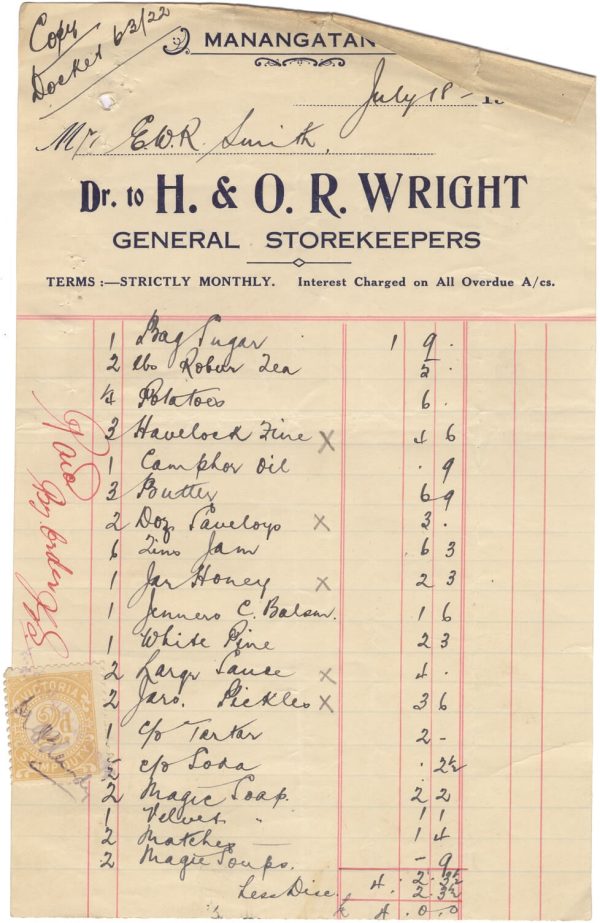 Copy
Docket 63/22
MANANGATAN
July 18 -
Mr. E.W.R. Smith,
Dr. to H. & O. R. WRIGHT
GENERAL STOREKEEPERS
TERMS :—STRICTLY MONTHLY. Interest Charged on All Overdue A/cs.
1 Bag Sugar 1 9 .
2 lbs Robur Tea 5 .
¼ Potatoes 6 .
3 Havelock Fine x 4 6
1 Camphor Oil . 9
3 Butter 6 9
2 Doz Saveloys x 3 .
6 Tins Jam 6 3
1 Jar Honey x 2 3
1 Jenners C. Balsm. 1 6
1 White Pine 2 3
2 Large Sauce x 4 .
2 Jars. Pickles x 3 6
1 c/o Tartar 2 -
c/o Soda . 2½
2 Magic Soap. 2 2
1 Velvet " 1 1
2 Matches — 1 4
2 Magic Soups. - 9
4 . 2 . 3½
Less Disc. 2 . 3½
£ 4 . 0 . 0
Paid
By Order
VICTORIA
STAMP DUTY